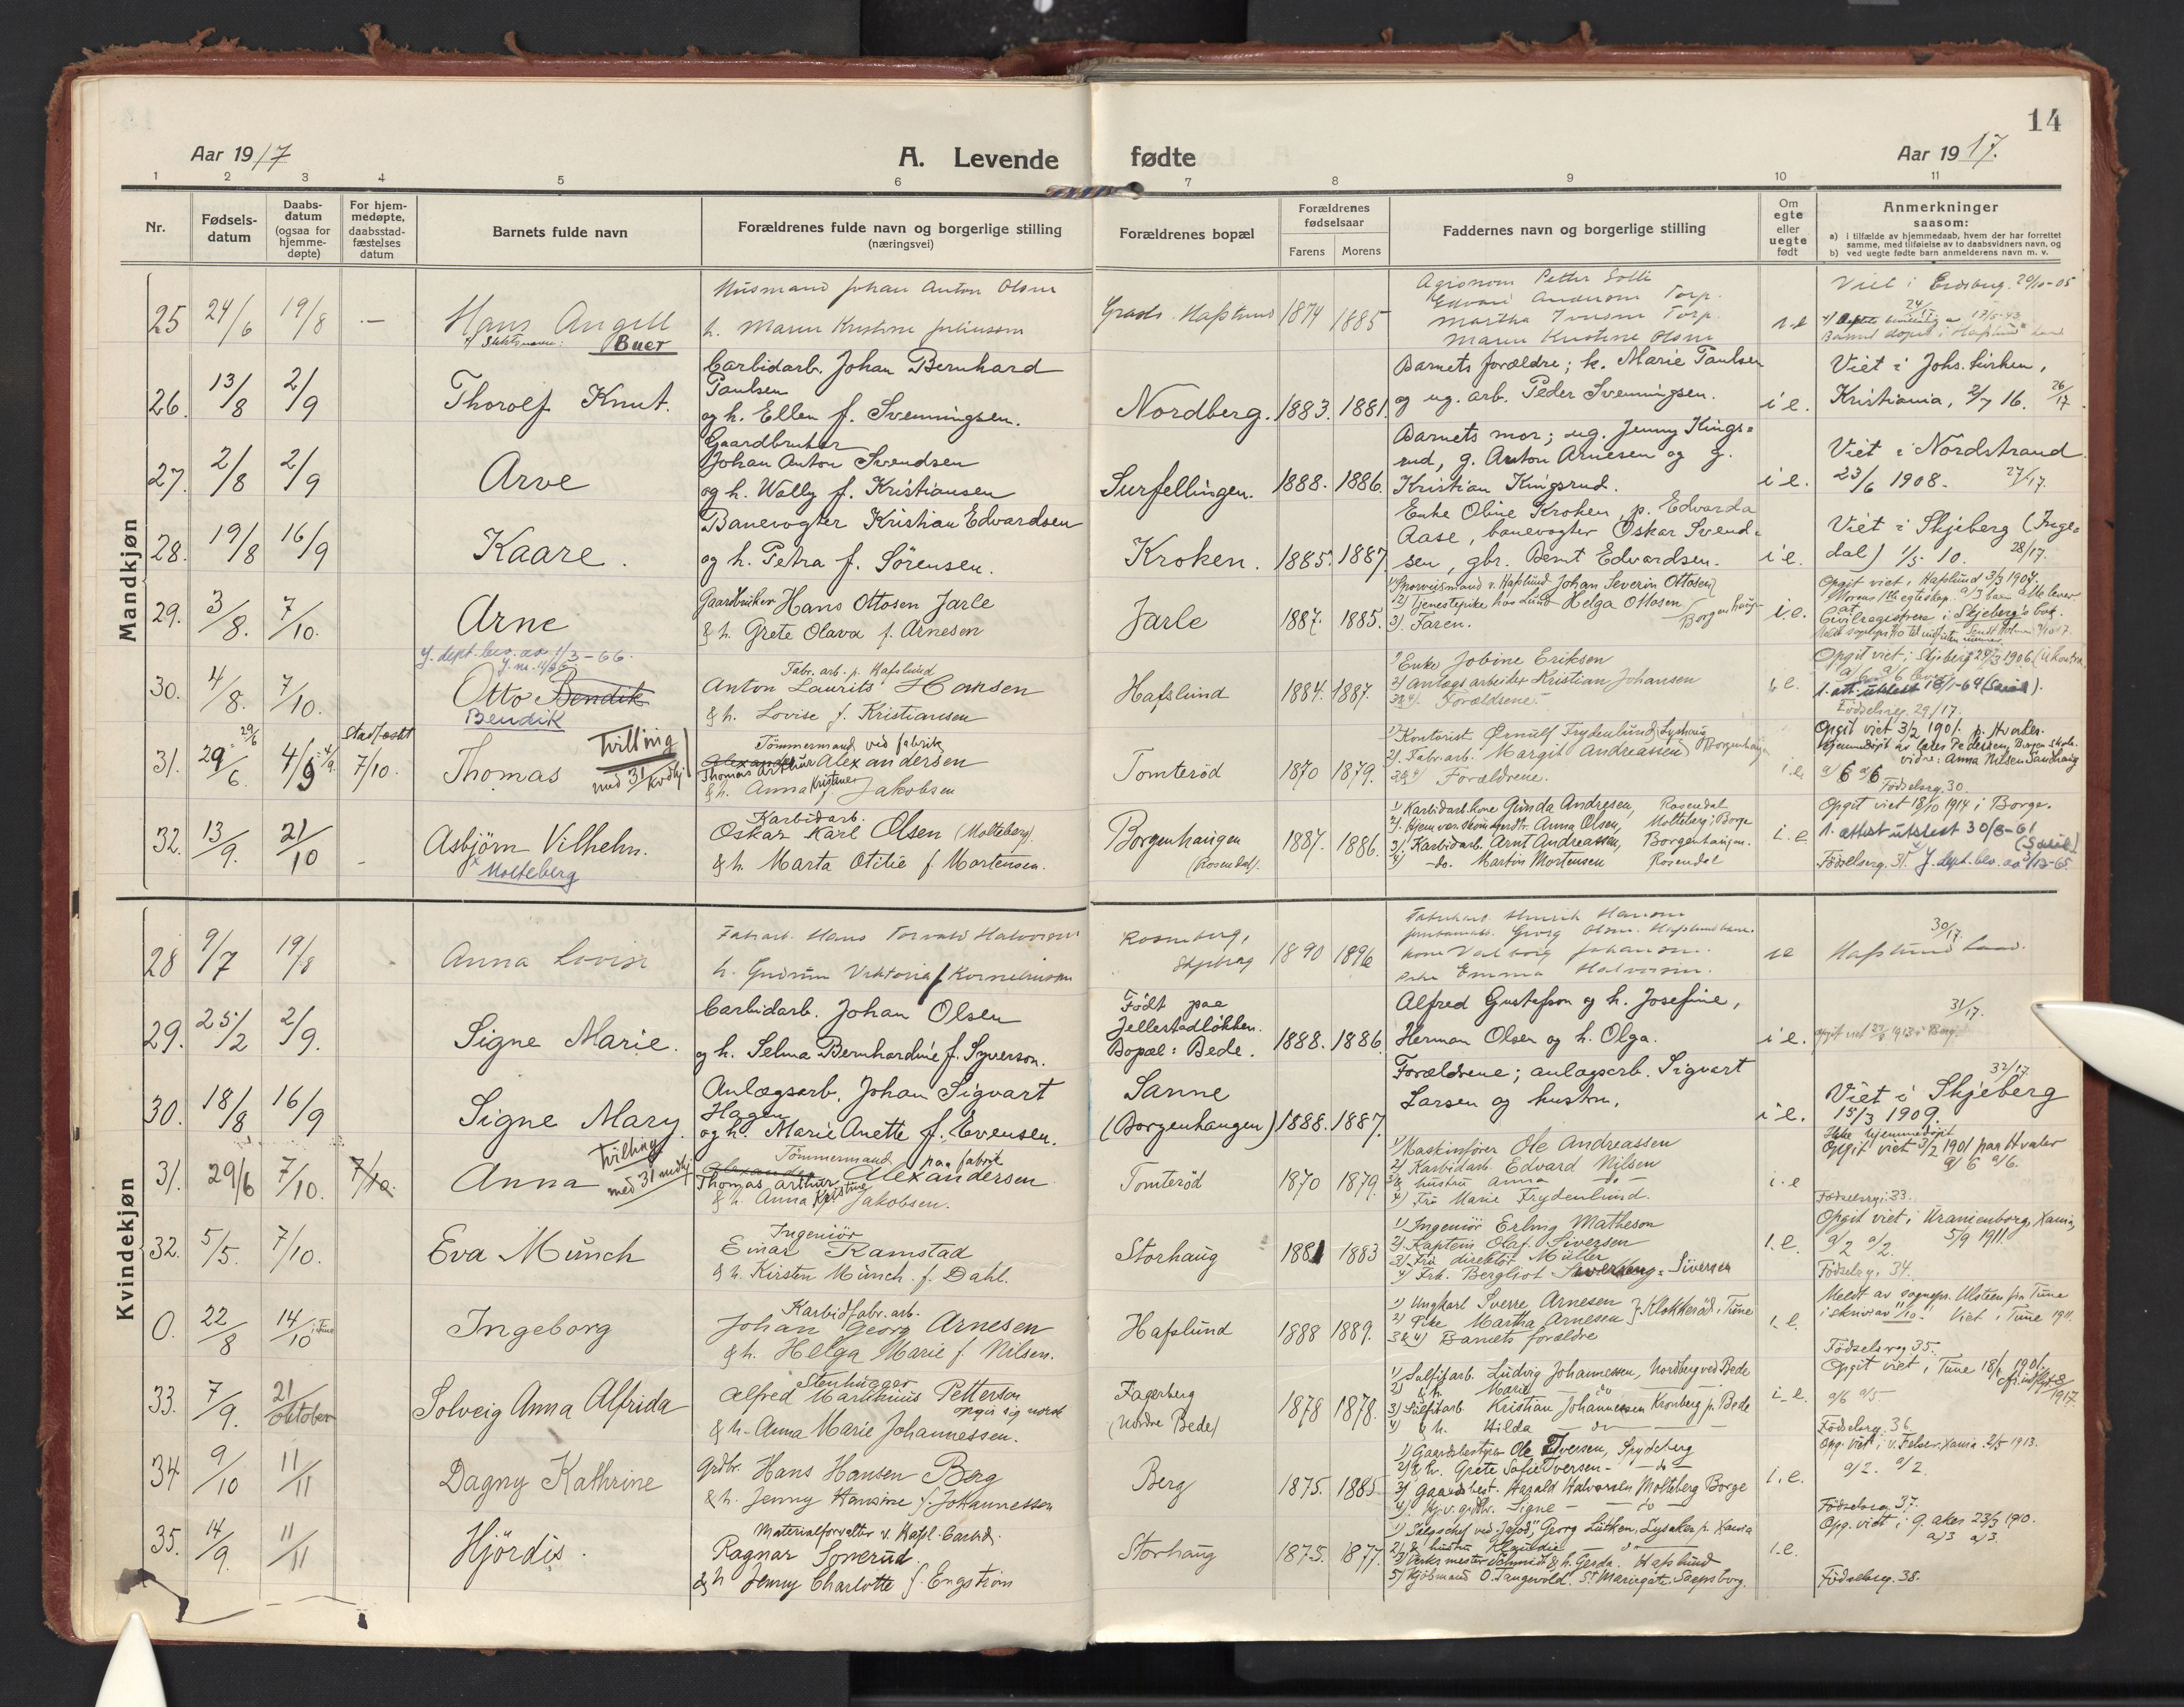 14
Aar 1917
A. Levende fødte
Aar 1917.
1 2 3 4 5 6 7 8 9 10 11
Nr.
Fødsels-
datum
Daabs-
datum
(ogsaa for
hjemme-
døpte)
For hjem-
medøpte,
daabsstad-
fæstelses
datum
Barnets fulde navn
Forældrenes fulde navn og borgerlige stilling
(næringsvei)
Forældrenes bopæl
Forældrenes
fødselsaar
Farens Morens
Faddernes navn og borgerlige stilling
Om
egte
eller
uegte
født
Anmerkninger
saasom:
a) i tilfælde av hjemmedaab, hvem der har forrettet
samme, med tilføielse av to daabsvidners navn, og
b) ved uegte fødte barn anmelderens navn m. v.
Mandkjøn
25 24/6 19/8 -
Hans Angell
Buer
Husmand Johan Anton Olsen
h. Maren Kristine Juliussen
Hafslund 1874 1885
Agronom Petter Solli
Edvard Andersen Torp.
Martha Torp.
Maren Kristine Olsen
26. 13/8 2/9
Thorolf Knut.
Carbidarb. Johan Bernhard
Paulsen
og h. Ellen f. Svenningsen.
Nordberg. 1883. 1881.
Barnets forældre; k. Marie Paulsen
og ug. arb. Peder Svenningsen.
i e.
Viet i Johs. kirken,
Kristiania, 2/7 16. 26/17
27. 2/8 2/9
Arve
Gaardbruker
Johan Anton Svendsen
og h. Wally f. Kristiansen
Surfellingen. 1888. 1886.
Barnets mor; ug. Jenny Kings=
rud, g. Anton Arnesen og g.
Kristian Kingsrud.
i e.
Viet i Nordstrand
23/6 1908. 27/17.
28. 19/8 16/9
Kaare.
Banevogter Kristian Edvardsen
og h. Petra f. Sörensen.
Kroken. 1885. 1887
Enke Oline Kroken, p. Edvarda
Aase, banevogter Oskar Svend=
sen, gbr. Bernt Edvardsen.
i e.
Viet i Skjeberg (Inge=
dal) 1/5 10. 28/17.
29. 3/8. 7/10.
Arne
Gaardbruker Hans Ottosen Jarle
& h. Grete Olava f. Arnesen
Jarle 1887. 1885.
1) Sporveismand v. Hafslund Johan Severin Ottosen
2) Tjenestepike hos Lund Helga Ottosen
3). Faren.
i.e.
Opgit viet i Hafslund 3/3 1907.
J. dept. bev. av 1/3-66.
30. 4/8. 7/10.
Otto Bendik
Bendik
Fabr. arb. p. Hafslund
Anton Laurits Hansen
& h. Lovise f. Kristiansen
Hafslund 1884. 1887.
1) Enke Jobine Eriksen
2) Anlægsarbeider Kristian Johansen
3&4) Forældrene.
i. e.
1. att. utstedt 18/1-64
Födselsreg. 29/17.
31. 29/6. 4/9 7/10.
Thomas
Tvilling
med 31 kvdkj.
Tömmermand ved fabrik
Alexander Alexandersen
Thomas Arthur
& h. Anna Kristine f. Jakobsen
Tomteröd 1870 1879.
1) Kontorist Örnulf Frydenlund, Lyshaug
2). Fabr. arb. Margit Andreassen, Borgenhaugen
3&4) Forældrene.
i.e.
Opgit viet 3/2 1901. p. Hvaler.
a) 6 b) 6
Födselsreg. 30.
32. 13/9. 21/10 -
Asbjörn Vilhelm.
x Molteberg
Karbidarb.
Oskar Karl Olsen (Molteberg).
& h. Marta Otilie f. Mortensen.
Borgenhaugen
(Rosendal). 1887. 1886.
1) Karbidarb. kone Gunda Andresen, Rosendal
2). Anna Olsen, Molteberg i Borge
3) Karbidarb. Arnt Andreassen, Borgenhaugen.
4) -do. Martin Mortensen Rosendal
i. e
Opgit viet 18/10 1914 i Borge.
1. attest utstedt 30/8-61
Födselsreg. 31. J. dept. bev. av 3/12-65.
Kvindekjøn
28 9/7 19/8
Anna Lovise
Fabrarb. Hans Torvald Halvorsen
h. Gudrun Viktoria f. Kornelius
Rosenberg,
Skjeberg 1890 1896
Fabrikarb. Henrik Hansen
Georg Olsen.
kone Valborg Johansen.
pike Emma Halvorsen.
30/17.
Hafslund
29. 25/2 2/9.
Signe Marie.
Carbidarb. Johan Olsen
og h. Selma Bernhardine f. Syverson.
Födt paa
Jellestadlökken.
Bopæl: Bede. 1888. 1886
Alfred Gustafson og h. Josefine,
Herman Olsen og h. Olga.
i e.
31/17.
30. 18/8 16/9
Signe Mary.
Anlægsarb. Johan Sigvart
Hagen
og h. Marie Anette f. Evensen.
Sanne
(Borgenhaugen) 1888. 1887.
Forældrene; anlægsarb. Sigvart
Larsen og hustru.
i e.
32/17.
Viet i Skjeberg
15/3 1909.
31. 29/6 7/10. 7/10.
Anna
Tvilling
med 31 mdkj.
Tömmermand paa fabrik
Alexander Alexandersen
Thomas Arthur
& h. Anna Kristine f. Jakobsen.
Tomteröd 1870 1879.
1) Maskinförer Ole Andreassen
2) Karbidarb. Edvard Nilsen
3) & hustru Anna -do-
4) Fru Marie Frydenlund.
i. e
Ikke hjemmedöpt
Opgit viet 3/2 1901 paa Hvaler
a) 6 b) 6.
Födselsreg. 33.
32. 5/5. 7/10.
Eva Münch
Ingeniör
Einar Ramstad
& h. Kirsten Münch f. Dahl.
Storhaug 1881 1883
1) Ingeniör Erling Matheson
2) Kaptein Olaf Siversen
3) Fru direktör Müller
4) Frk. Bergliot Siversen
i. e.
Opgit viet i Uranienborg, Xania,
5/9 1911
a) 2 b) 2.
Födselsreg. 34.
0. 22/8 14/10 i Tune
Ingeborg
Karbidfabr. arb.
Johan Georg Arnesen
& h. Helga Marie f. Nilsen.
Hafslund 1888 1889.
1) Ungkarl Sverre Arnesen
2) Pike Martha Arnesen } Klokkeröd i Tune
3&4) Barnets forældre
i. e.
Meldt av sognepr. Ulsteen fra Tune
i skriv av 11/10. Viet i Tune 1911.
Födselsreg 35.
33. 7/9. 21/oktober
Solveig Anna Alfrida
Stenhugger
Alfred Marthinius Petterson
opgir sig norsk
& h. Anna Marie Johannessen.
Fagerberg
(Nordre Bede) 1878 1878.
1) Sulfitarb. Ludvig Johannessen, Nordberg ved Bede
2) & h. Marie do
3) Sulfitarb. Kristian Johannessen Kronberg p. Bede
4) & h. Hilda - do -
i. e.
a) 6 b) 5
Födselsreg. 36.
34 9/10 11/11
Dagny Kathrine
Grdbr. Hans Hansen Berg
& h. Jenny Hansine f. Johannessen
Berg 1875. 1885
1) Gaardsbestyrer Ole Iversen, Spydeberg
2) & h. Grete Sofie Iversen - do -
3) Gaardsbest. Harald Halvorsen Molteberg Borge
i. e.
a) 2. b) 2
Födselsreg 37.
35. 14/9. 11/11
Hjördis.
Materialforvalter v. Hafsl. Carbid.
Ragnar Sonerud.
& h Jenny Charlotte f. Engström
Storhaug 1875. 1877.
Georg Lütken, Lysaker p. Xania
& h. Gerda. Hafslund
i. e.
a) 3 b) 3.
Födselsreg. 38.